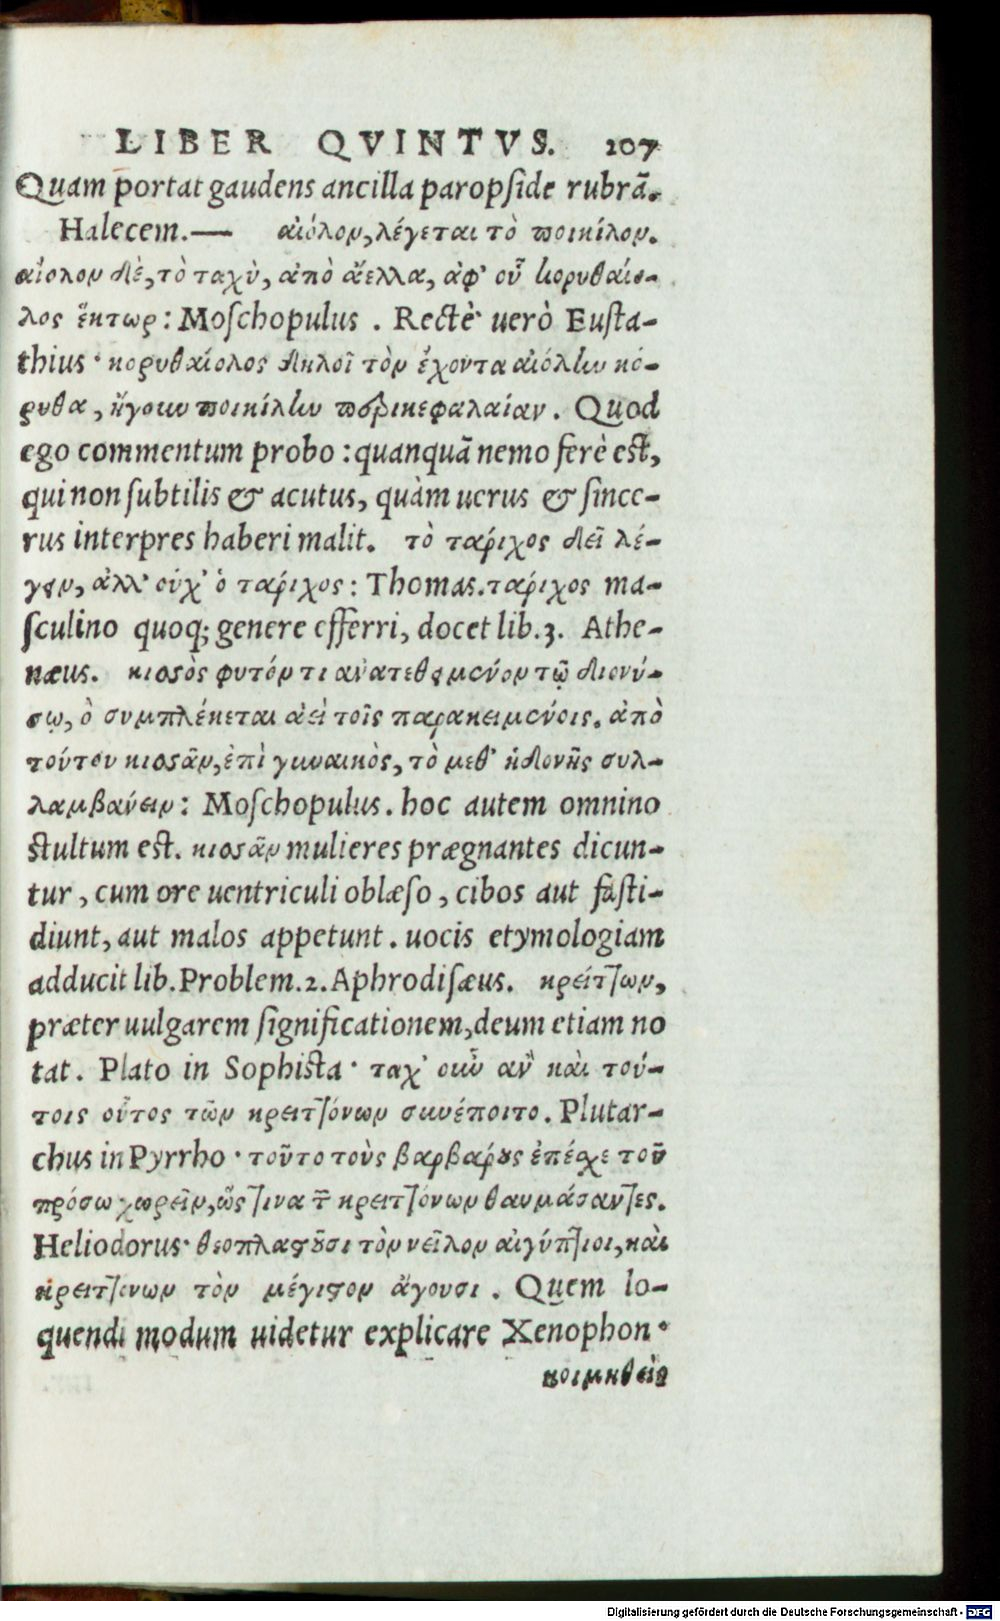 LIBER QVINTVS. 107
Quam portat gaudens ancilla paropſide rubrā.
Halecem.— αἰόλον, λέγεται τὸ ποικίλον.
αἴολον δὲ, τὸ ταχὺ, ἀπὸ ἄελλα, ἀφ' οὗ κορυθαίο-
λος ἕκτωρ: Moſchopulus. Rectè uerò Euſta-
thius· κορυθαίολος δηλοῖ τὸν ἔχοντα αἰόλην κό-
ρυθα, ἤγουν ποικίλην περικεφαλαίαν. Quod
ego commentum probo: quanquā nemo ferè eſt,
qui non ſubtilis & acutus, quàm uerus & ſince-
rus interpres haberi malit. τὸ τάριχος δεῖ λέ-
γειν, ἀλλ' οὐχ' ὁ τάριχος: Thomas. τάριχος ma-
ſculino quoq; genere efferri, docet lib.3. Athe-
næus. κισσὸς φυτόν τι ἀνατεθειμένον τῷ διονύ-
σῳ, ὃ συμπλέκεται ἀεὶ τοῖς παρακειμένοις. ἀπὸ
τούτου κισσᾶν, ἐπὶ γυναικὸς, τὸ μεθ' ἡδονῆς συλ-
λαμβάνειν: Moſchopulus. hoc autem omnino
ſtultum eſt. κισσᾶν mulieres prægnantes dicun-
tur, cum ore uentriculi oblæſo, cibos aut faſti-
diunt, aut malos appetunt. uocis etymologiam
adducit lib. Problem.2. Aphrodiſæus. κρείττων,
præter uulgarem ſignificationem, deum etiam no
tat. Plato in Sophiſta· ταχ' οὖν ἂν καὶ τού-
τοις οὗτος τῶν κρειττόνων συνέποιτο. Plutar-
chus in Pyrrho· τοῦτο τοὺς βαρβάρους ἐπέσχε τοῦ
πρόσω χωρεῖν, ὥς τινα τ̃ κρειττόνων θαυμάσαντες.
Heliodorus· θεοπλαστοῦσι τὸν νεῖλον αἰγύπτιοι, καὶ
κρειττόνων τὸν μέγιστον ἄγουσι. Quem lo-
quendi modum uidetur explicare Xenophon·
κοιμηθεὶς
Digitalisierung gefördert durch die Deutsche Forschungsgemeinschaft - DFG